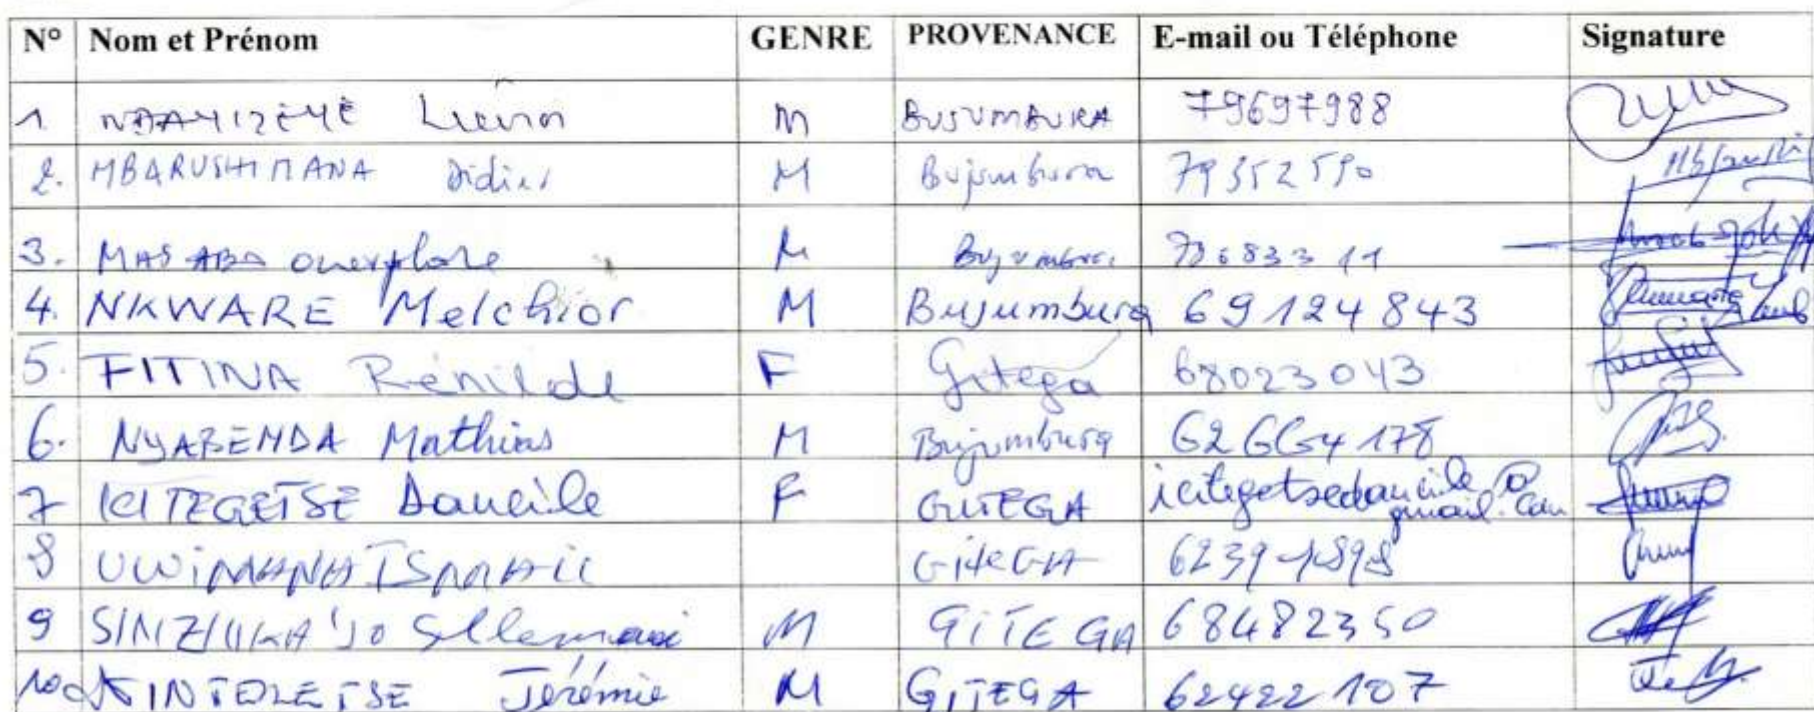 N° Nom et Prénom GENRE PROVENANCE E-mail ou Téléphone Signature
1. NDAYIZEYE M BUJUMBURA 79697988
2. MBARUSHIMANA Didier M Bujumbura 79352590
3. MASABO M Bujumbura
4. NKWARE Melchior M Bujumbura 69124843
5. FITINA Rénilde F Gitega 68023043
6. NYABENDA Mathias M Bujumbura 62664178
7 ICITEGETSE Daucile F GITEGA icitegetsedaucile@
gmail.com
8 UWIMANA ISMAIL GITEGA
9 M GITEGA 68482350
10 Jérémie M GITEGA 62422107